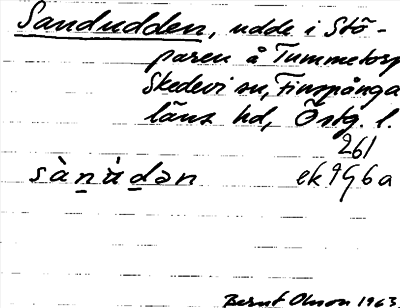 Sandudden, udde i Stö-
paren å Tummetorp
Skedevi sn, Finspånga
läns hd, Östg. l.
261
sànùdən ek 9g6a
Bernt Olsson 1963